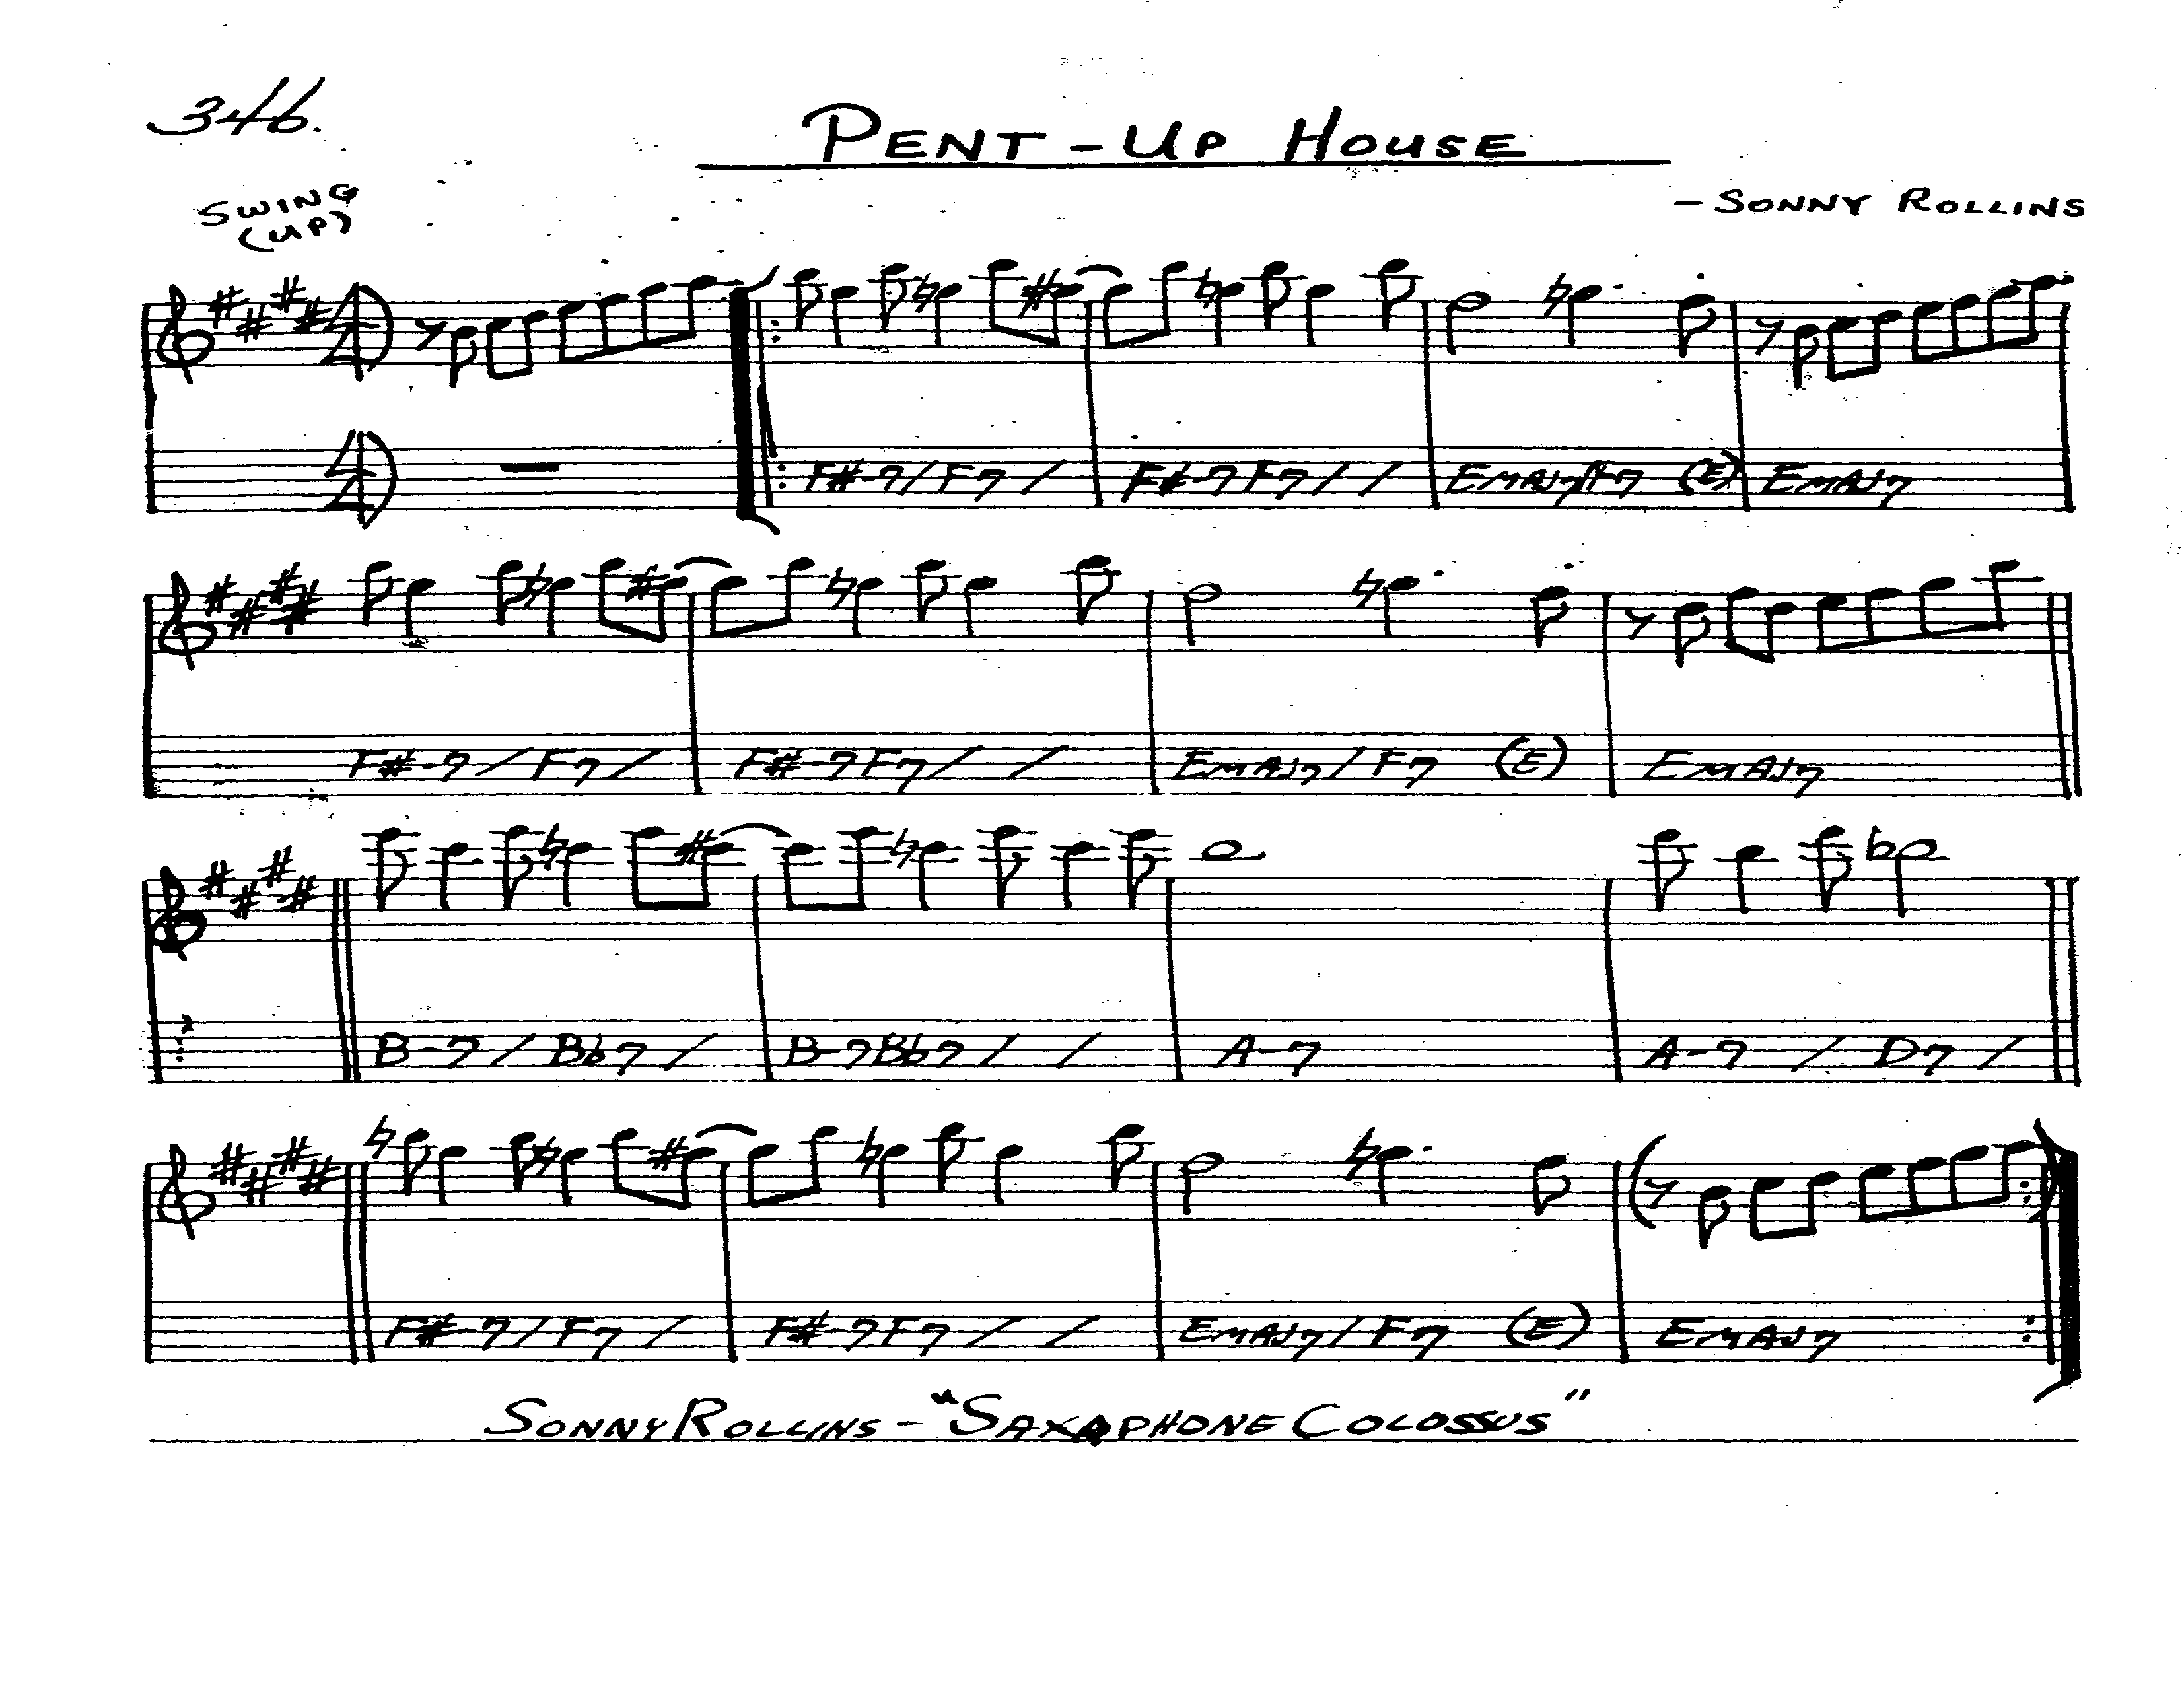 346.
PENT-UP HOUSE
SWING
(UP)
- SONNY ROLLINS
F#-7 / F7 / F#-7 F7 / / EMAJ7 / F7 (E) EMAJ7
F#-7 / F7 / F#-7 F7 / / EMAJ7 / F7 (E) EMAJ7
B-7 / Bb7 / B-7 Bb7 / / A-7 A-7 / D7 /
F#-7 / F7 / F#-7 F7 / / EMAJ7 / F7 (E) EMAJ7
SONNY ROLLINS - "SAXOPHONE COLOSSUS"